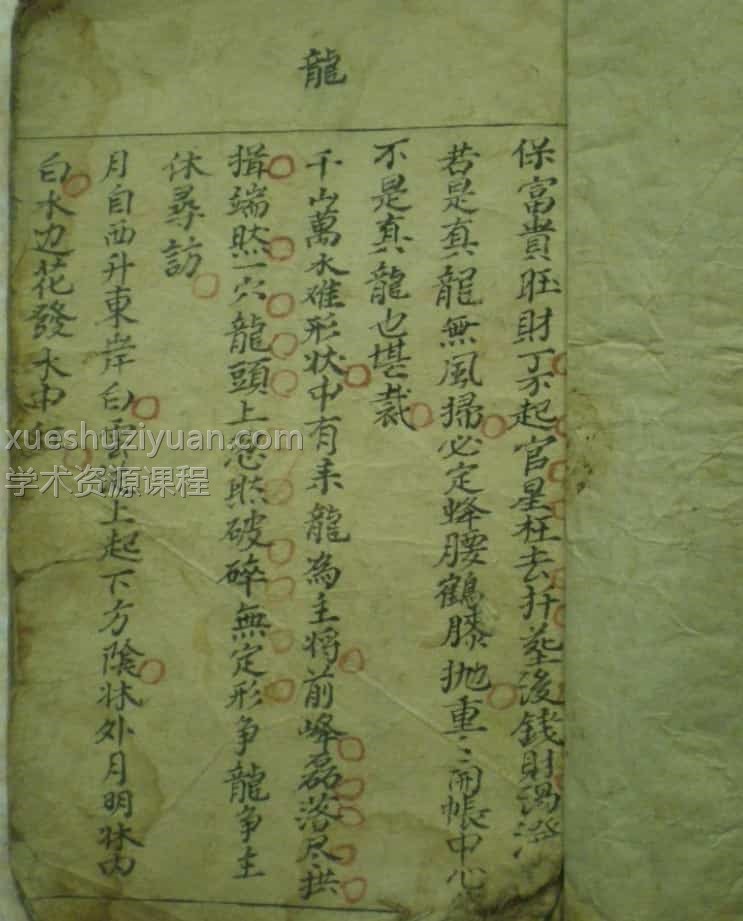 龍
保富貴旺財丁不起官星枉去扦墓後錢財渴
若是真龍無風掃必定蜂腰鶴膝抛重〻開帳中心
不是真龍也堪裁
千山萬水难形状中有来龍為主将前峰磊落尽拱
揖端然一穴龍頭上忽然破碎無定形争龍争主
休尋訪
月自西升東岸白雲源上起下方陰床外月明床内
白水边花發水中
xueshuziyuan.com
学术资源课程